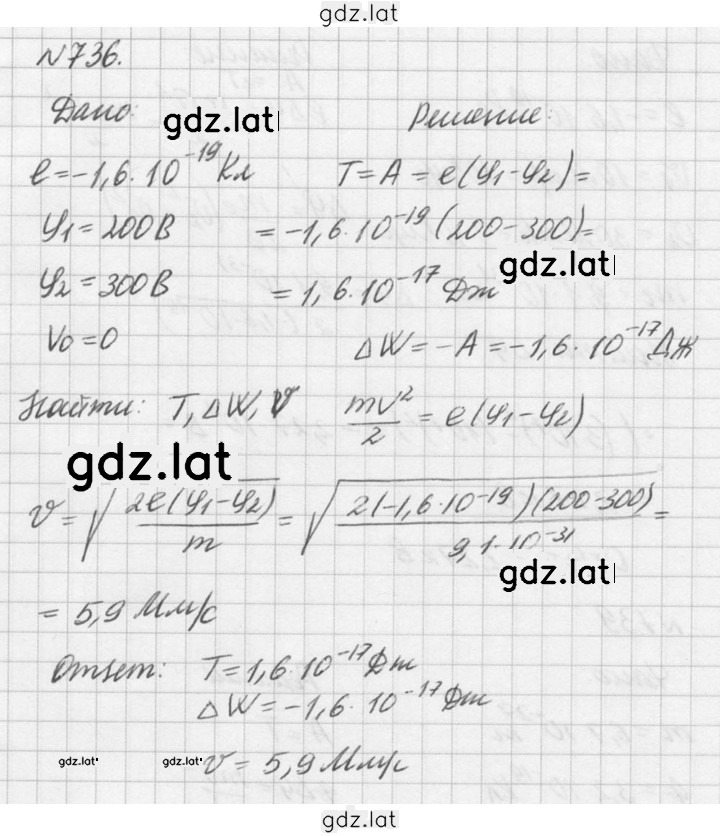 gdz.lat
№736.
Дано: gdz.lat Решение:
e=-1,6·10⁻¹⁹Кл T=A=e(φ₁-φ₂)=
φ₁=200В =-1,6·10⁻¹⁹(200-300)=
gdz.lat
φ₂=300В =1,6·10⁻¹⁷Дж
V₀=0 ΔW=-A=-1,6·10⁻¹⁷Дж
Найти: T, ΔW, V mv²/2=e(φ₁-φ₂)
gdz.lat
v=√(2e(φ₁-φ₂)/m)=√(2(-1,6·10⁻¹⁹)(200-300)/9,1·10⁻³¹)=
gdz.lat
=5,9 Мм/с
Ответ: T=1,6·10⁻¹⁷Дж
ΔW=-1,6·10⁻¹⁷Дж
gdz.lat gdz.lat v=5,9 Мм/с
gdz.lat